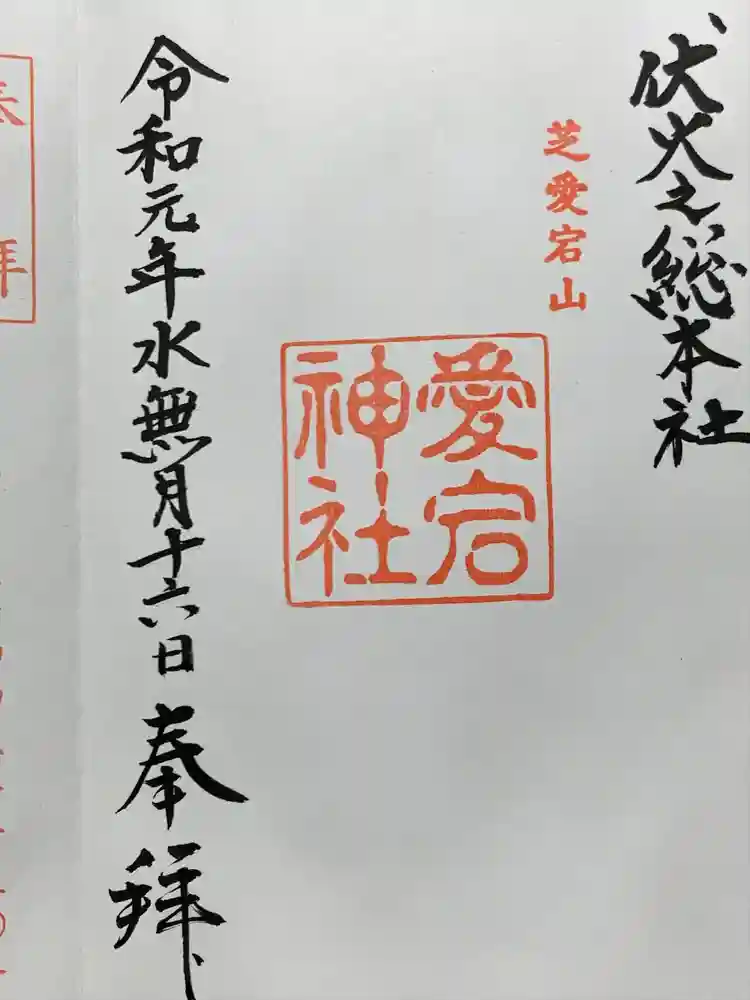 伏火之総本社
芝愛宕山
愛宕
神社
令和元年水無月十六日 奉拝
奉拝